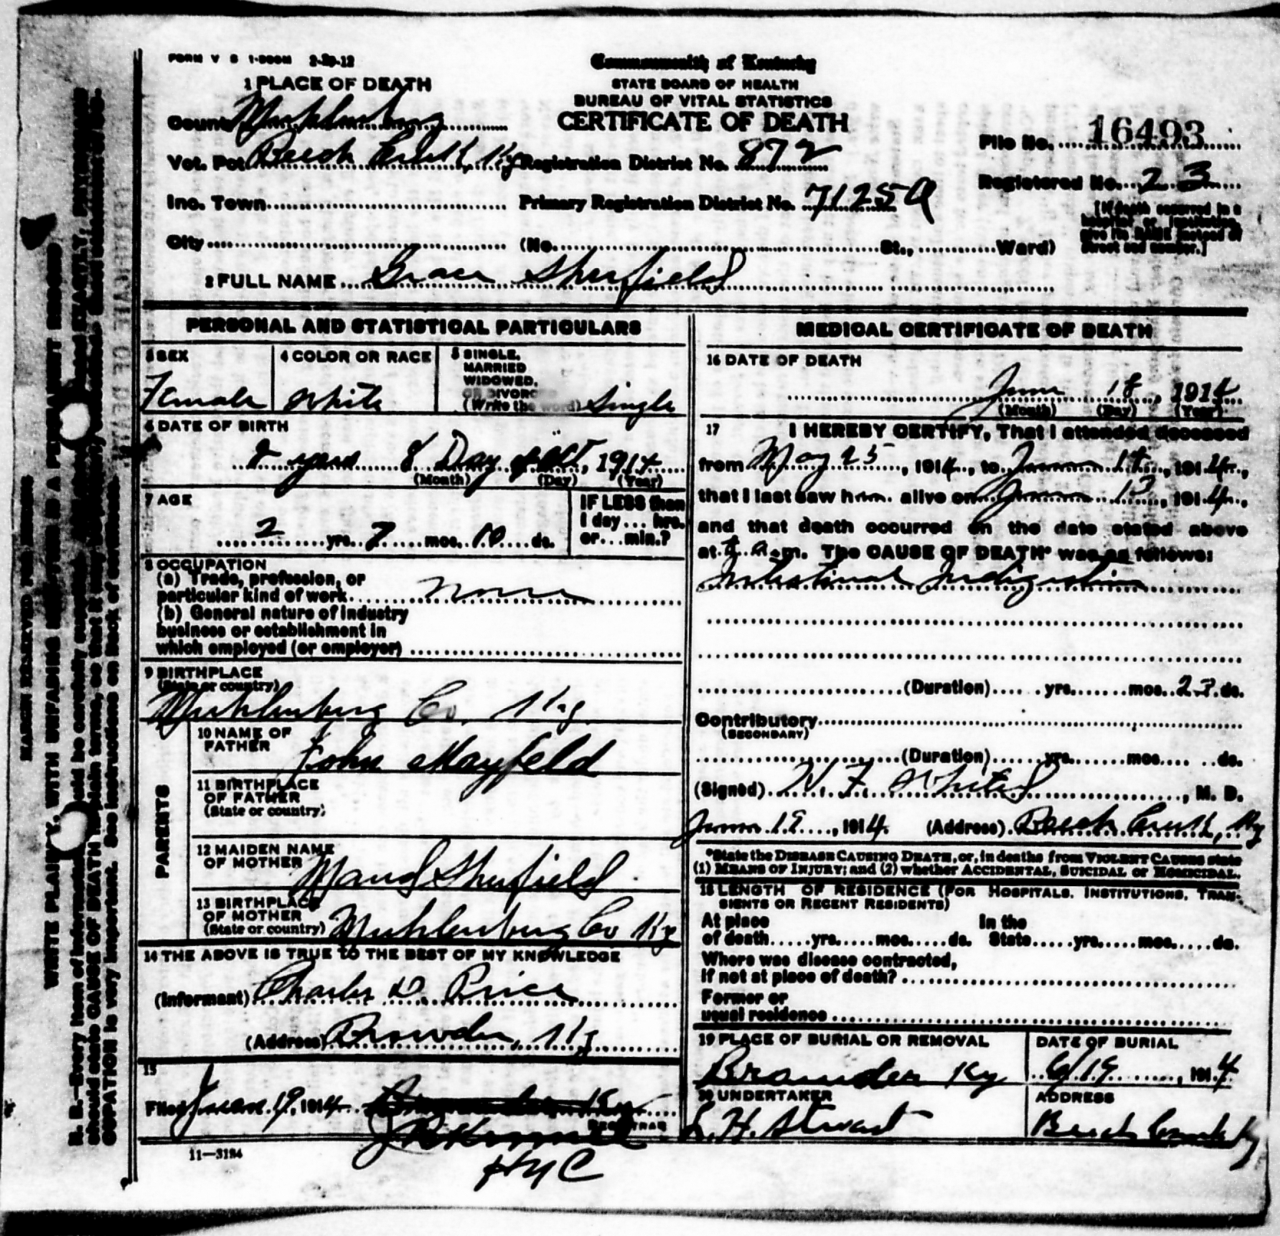 FORM V S 1-500M 3-20-12
Commonwealth of Kentucky
STATE BOARD OF HEALTH
BUREAU OF VITAL STATISTICS
CERTIFICATE OF DEATH
1 PLACE OF DEATH
County Muhlenberg
Vot. Pct Beech Creek, Ky
Inc. Town
City
Registration District No. 872
Primary Registration District No. 7125A
(No. St., Ward)
File No. 16493
Registered No. 23
[If death occurred in a
hospital or institution,
give its NAME instead of
street and number.]
2 FULL NAME Grace Sherfield
PERSONAL AND STATISTICAL PARTICULARS
3 SEX
Female
4 COLOR OR RACE
White
5 SINGLE,
MARRIED
WIDOWED,
OR DIVORCED
(Write the word) Single
6 DATE OF BIRTH
2 years 8 Day , 1914
(Month) (Day) (Year)
7 AGE
2 yrs. 7 mos. 10 ds.
IF LESS than
1 day ... hrs.
or ... min.?
8 OCCUPATION
(a) Trade, profession, or
particular kind of work None
(b) General nature of industry
business or establishment in
which employed (or employer)
9 BIRTHPLACE
(State or country)
Muhlenburg Co. Ky
PARENTS
10 NAME OF
FATHER John Mayfield
11 BIRTHPLACE
OF FATHER
(State or country)
12 MAIDEN NAME
OF MOTHER Maud Sherfield
13 BIRTHPLACE
OF MOTHER
(State or country) Muhlenburg Co Ky
14 THE ABOVE IS TRUE TO THE BEST OF MY KNOWLEDGE
(Informant) Charles D. Price
(Address) Browder, Ky
15
Filed June 19, 1914
REGISTRAR
11-3184
MEDICAL CERTIFICATE OF DEATH
16 DATE OF DEATH
June 18, 1914
(Month) (Day) (Year)
17 I HEREBY CERTIFY, That I attended deceased
from May 25, 1914, to June 18, 1914,
that I last saw h alive on June 17, 1914,
and that death occurred on the date stated above
at a.m. The CAUSE OF DEATH* was as follows:
Intestinal Indigestion
(Duration) yrs. mos. 23 ds.
Contributory
(SECONDARY)
(Duration) yrs. mos. ds.
(Signed) , M. D.
June 19, 1914 (Address) Beech Creek, Ky
*State the DISEASE CAUSING DEATH, or, in deaths from VIOLENT CAUSES state
(1) MEANS OF INJURY; and (2) whether ACCIDENTAL, SUICIDAL or HOMICIDAL.
18 LENGTH OF RESIDENCE (FOR HOSPITALS, INSTITUTIONS, TRAN-
SIENTS OR RECENT RESIDENTS)
At place In the
of death yrs. mos. ds. State yrs. mos. ds.
Where was disease contracted,
if not at place of death?
Former or
usual residence
19 PLACE OF BURIAL OR REMOVAL
Browder Ky
DATE OF BURIAL
6/19, 1914
20 UNDERTAKER
L. H. Stewart
ADDRESS
Beech Creek, Ky
MARGIN RESERVED FOR BINDING
WRITE PLAINLY, WITH UNFADING INK—THIS IS A PERMANENT RECORD